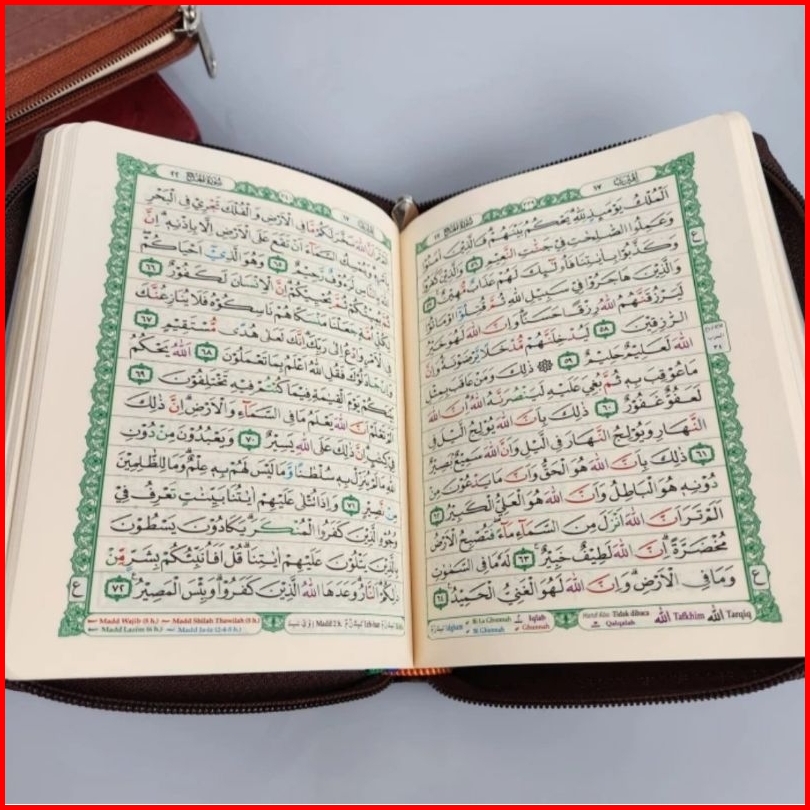 الجزء ١٧
سورة الحج ٢٢
اَلْمُلْكُ يَوْمَىِٕذٍ لِّلّٰهِ يَحْكُمُ بَيْنَهُمْ فَالَّذِيْنَ اٰمَنُوْا
وَعَمِلُوا الصّٰلِحٰتِ فِيْ جَنّٰتِ النَّعِيْمِ ٥٦ وَالَّذِيْنَ كَفَرُوْا
وَكَذَّبُوْا بِاٰيٰتِنَا فَاُولٰۤىِٕكَ لَهُمْ عَذَابٌ مُّهِيْنٌ ٥٧
وَالَّذِيْنَ هَاجَرُوْا فِيْ سَبِيْلِ اللّٰهِ ثُمَّ قُتِلُوْٓا اَوْ مَاتُوْا
لَيَرْزُقَنَّهُمُ اللّٰهُ رِزْقًا حَسَنًا وَاِنَّ اللّٰهَ لَهُوَ خَيْرُ
الرّٰزِقِيْنَ ٥٨ لَيُدْخِلَنَّهُمْ مُّدْخَلًا يَّرْضَوْنَهٗ وَاِنَّ
اللّٰهَ لَعَلِيْمٌ حَلِيْمٌ ٥٩ ۞ ذٰلِكَ وَمَنْ عَاقَبَ بِمِثْلِ
مَا عُوْقِبَ بِهٖ ثُمَّ بُغِيَ عَلَيْهِ لَيَنْصُرَنَّهُ اللّٰهُ اِنَّ اللّٰهَ
لَعَفُوٌّ غَفُوْرٌ ٦٠ ذٰلِكَ بِاَنَّ اللّٰهَ يُوْلِجُ الَّيْلَ فِى
النَّهَارِ وَيُوْلِجُ النَّهَارَ فِى الَّيْلِ وَاَنَّ اللّٰهَ سَمِيْعٌۢ بَصِيْرٌ
٦١ ذٰلِكَ بِاَنَّ اللّٰهَ هُوَ الْحَقُّ وَاَنَّ مَا يَدْعُوْنَ مِنْ
دُوْنِهٖ هُوَ الْبَاطِلُ وَاَنَّ اللّٰهَ هُوَ الْعَلِيُّ الْكَبِيْرُ ٦٢
اَلَمْ تَرَ اَنَّ اللّٰهَ اَنْزَلَ مِنَ السَّمَاۤءِ مَاۤءً فَتُصْبِحُ الْاَرْضُ
مُخْضَرَّةً اِنَّ اللّٰهَ لَطِيْفٌ خَبِيْرٌ ٦٣ لَهٗ مَا فِى السَّمٰوٰتِ
وَمَا فِى الْاَرْضِ وَاِنَّ اللّٰهَ لَهُوَ الْغَنِيُّ الْحَمِيْدُ ٦٤
Idgham
Bi La Ghunnah
Bi Ghunnah
Iqlab
Ghunnah
Huruf Abu Tidak dibaca
Qalqalah
اللّٰه Tafkhim اللّٰه Tarqiq
سورة الحج ٢٢
اَلَمْ تَرَ اَنَّ اللّٰهَ سَخَّرَ لَكُمْ مَّا فِى الْاَرْضِ وَالْفُلْكَ تَجْرِيْ فِى الْبَحْرِ
بِاَمْرِهٖ وَيُمْسِكُ السَّمَاۤءَ اَنْ تَقَعَ عَلَى الْاَرْضِ اِلَّا بِاِذْنِهٖ اِنَّ
اللّٰهَ بِالنَّاسِ لَرَءُوْفٌ رَّحِيْمٌ ٦٥ وَهُوَ الَّذِيْٓ اَحْيَاكُمْ
ثُمَّ يُمِيْتُكُمْ ثُمَّ يُحْيِيْكُمْ اِنَّ الْاِنْسَانَ لَكَفُوْرٌ ٦٦
لِكُلِّ اُمَّةٍ جَعَلْنَا مَنْسَكًا هُمْ نَاسِكُوْهُ فَلَا يُنَازِعُنَّكَ
فِى الْاَمْرِ وَادْعُ اِلٰى رَبِّكَ اِنَّكَ لَعَلٰى هُدًى مُّسْتَقِيْمٍ ٦٧
وَاِنْ جٰدَلُوْكَ فَقُلِ اللّٰهُ اَعْلَمُ بِمَا تَعْمَلُوْنَ ٦٨ اَللّٰهُ يَحْكُمُ
بَيْنَكُمْ يَوْمَ الْقِيٰمَةِ فِيْمَا كُنْتُمْ فِيْهِ تَخْتَلِفُوْنَ ٦٩
اَلَمْ تَعْلَمْ اَنَّ اللّٰهَ يَعْلَمُ مَا فِى السَّمَاۤءِ وَالْاَرْضِ اِنَّ ذٰلِكَ
فِيْ كِتٰبٍ اِنَّ ذٰلِكَ عَلَى اللّٰهِ يَسِيْرٌ ٧٠ وَيَعْبُدُوْنَ مِنْ دُوْنِ
اللّٰهِ مَا لَمْ يُنَزِّلْ بِهٖ سُلْطٰنًا وَّمَا لَيْسَ لَهُمْ بِهٖ عِلْمٌ وَمَا لِلظّٰلِمِيْنَ
مِنْ نَّصِيْرٍ ٧١ وَاِذَا تُتْلٰى عَلَيْهِمْ اٰيٰتُنَا بَيِّنٰتٍ تَعْرِفُ فِيْ
وُجُوْهِ الَّذِيْنَ كَفَرُوا الْمُنْكَرَ يَكَادُوْنَ يَسْطُوْنَ
بِالَّذِيْنَ يَتْلُوْنَ عَلَيْهِمْ اٰيٰتِنَا قُلْ اَفَاُنَبِّئُكُمْ بِشَرٍّ مِّنْ
ذٰلِكُمْ اَلنَّارُ وَعَدَهَا اللّٰهُ الَّذِيْنَ كَفَرُوْا وَبِئْسَ الْمَصِيْرُ ٧٢
Madd Wajib (5 h.) Madd Shilah Thawilah (5 h.)
Madd Lazim (6 h.) Madd Ja-iz (2/4/5 h.)
Madd 2 h.